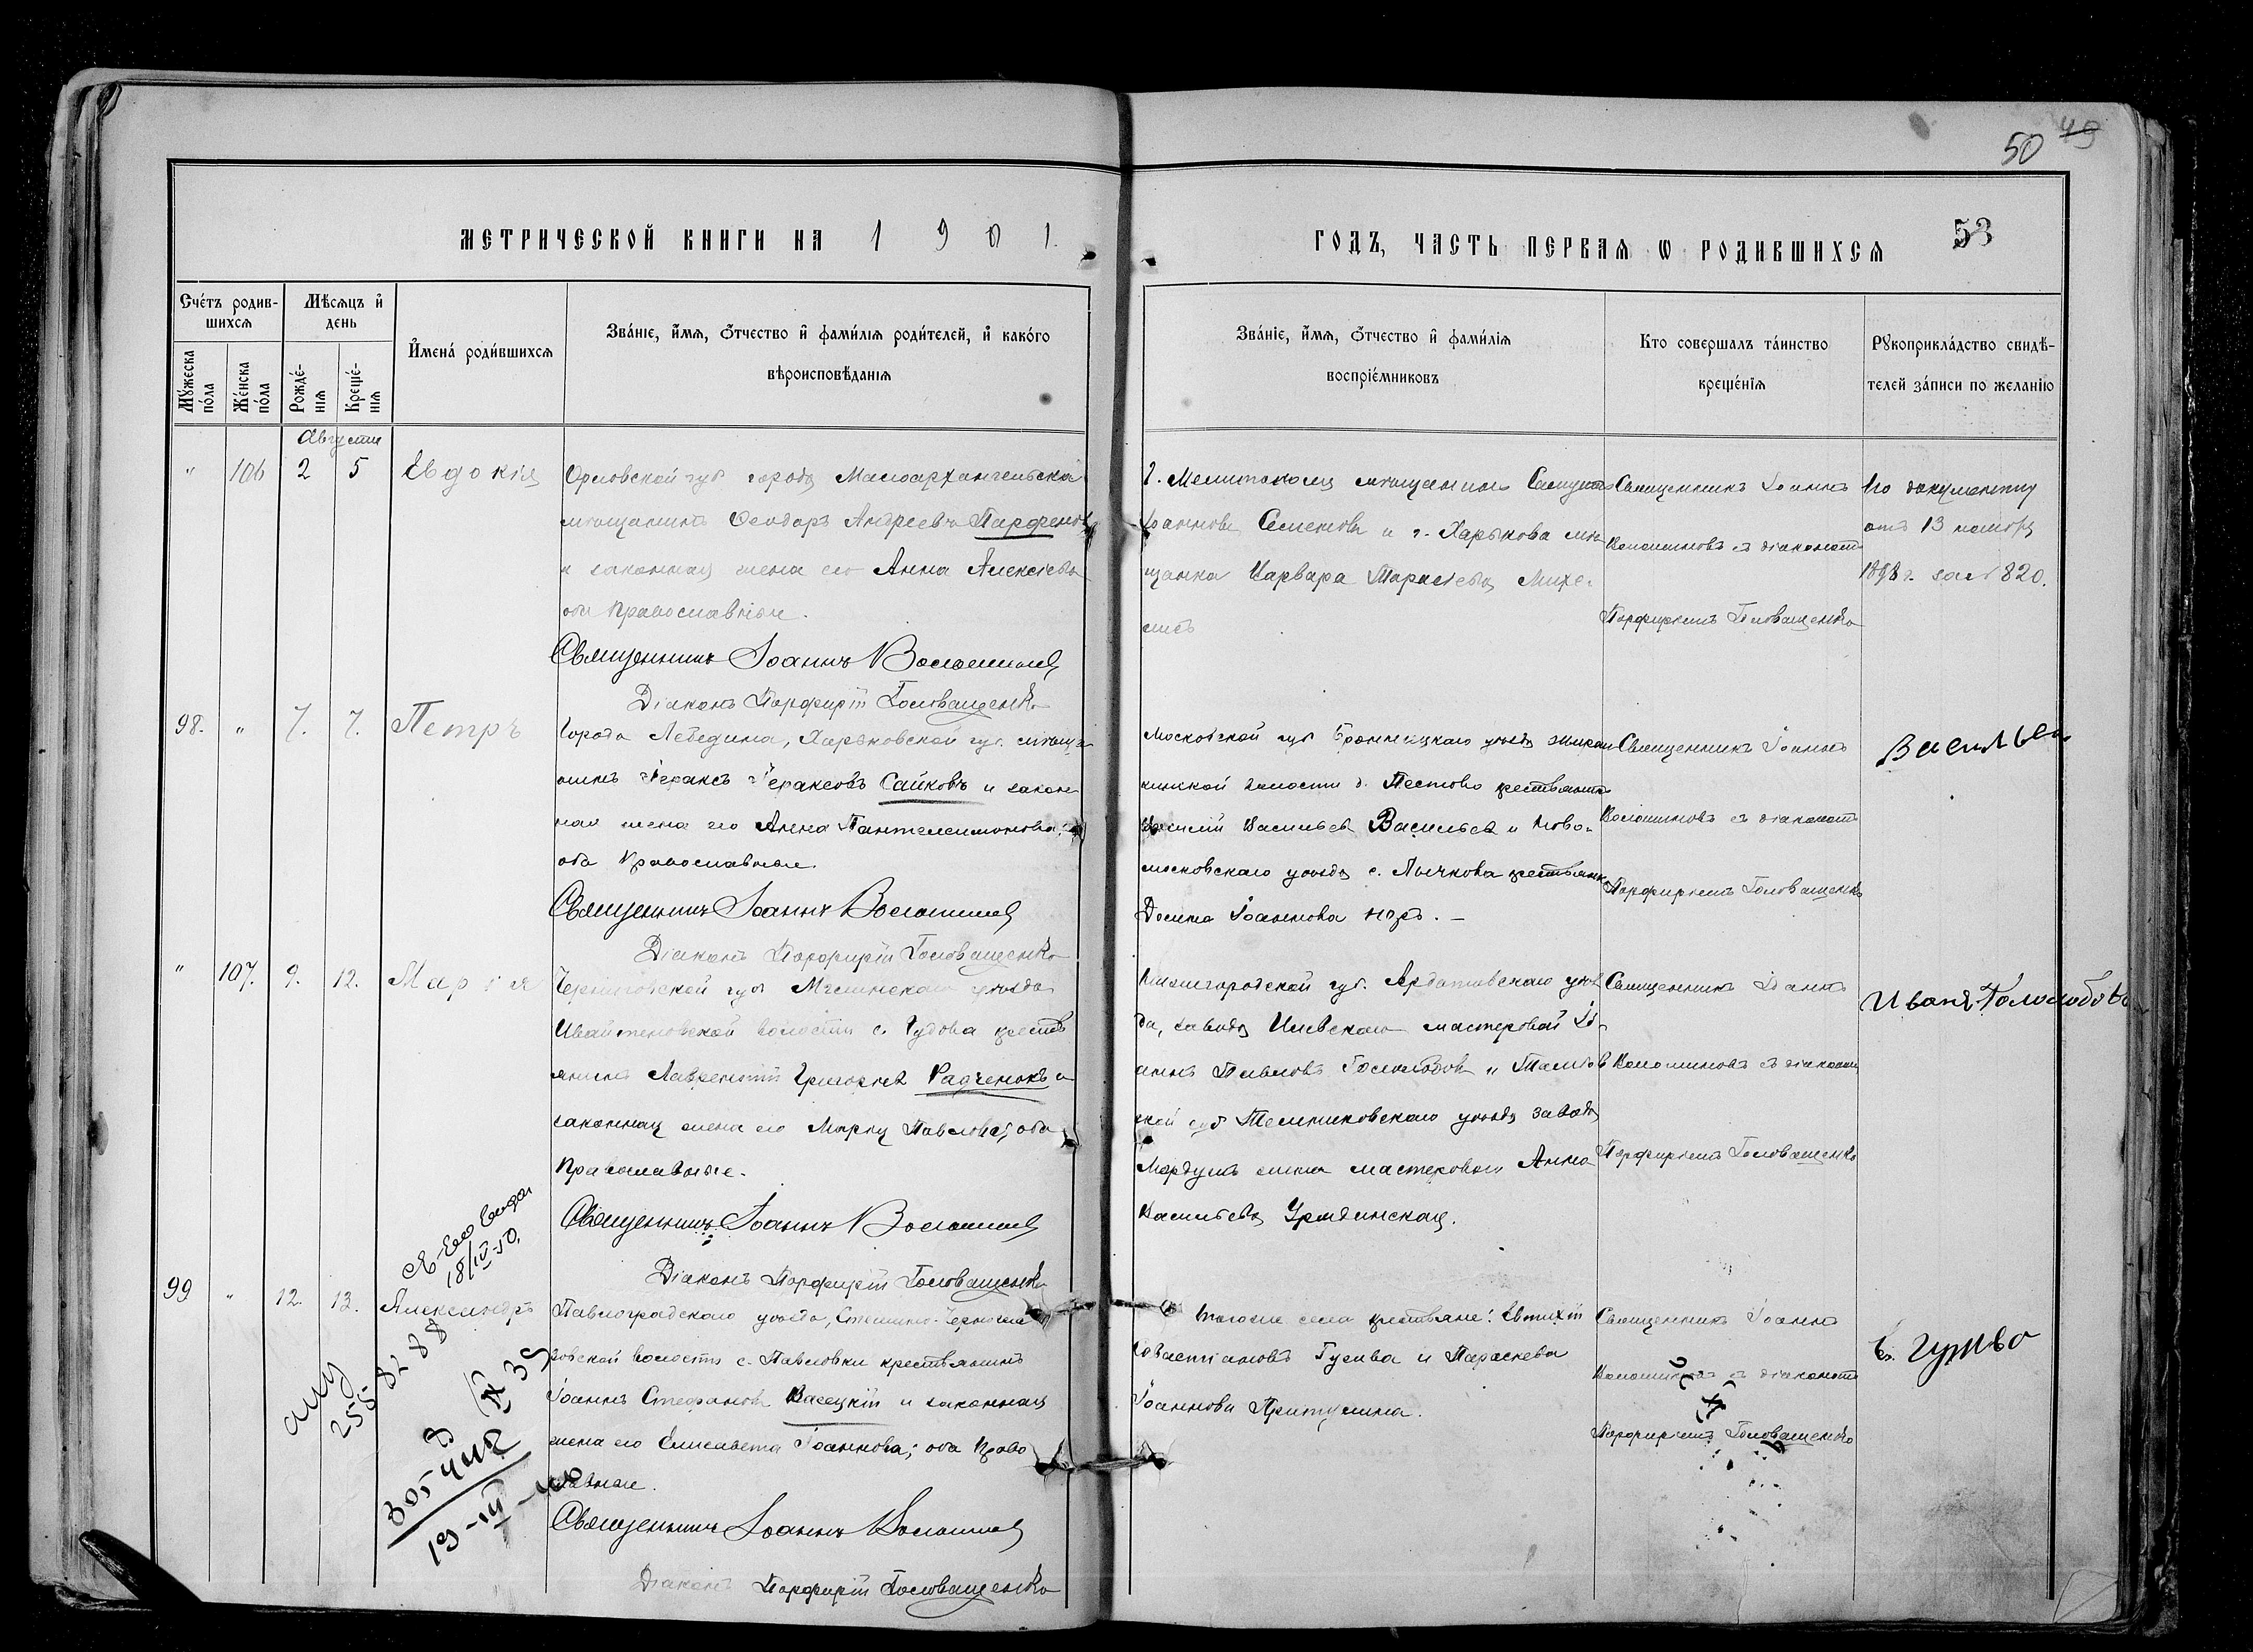 50 49
МЕТРИЧЕСКОЙ КНИГИ НА 1901.
ГОДЪ, ЧАСТЬ ПЕРВАЯ Ѡ РОДИВШИХСЯ
53
Сче́тъ родив-
шихся
Мѣсяцъ и҆
день
Му́жеска
по́ла
Же́нска
по́ла
Рожде́-
нія
Креще́-
нія
И҆мена́ роди́вшихся
Зва́ніе, и҆́мя, ѻ҆́тчество и҆ фами́лія роди́телей, и҆ како́го
вѣроисповѣ́данія
Зва́ніе, и҆́мя, ѻ҆́тчество и҆ фами́лія
воспріе́мниковъ
Кто соверша́лъ та́инство
креще́нія
Рꙋкоприкла́дство свидѣ́-
телей за́писи по жела́нію
Августъ
" 106 2 5 Евдокія
Орловской губ города Малоархангельска
мѣщанинъ Феодоръ Андреевъ Парфенов
и законная жена его Анна Алексіева
оба православные.
Священникъ Іоаннъ Волошинов
Діаконъ Порфирій Головащенко
г. Мелитополя мѣщанинъ
Іоаннов Семенов и г. Харькова мѣ-
щанка Варвара Тарасіева
Священникъ Іоаннъ
Волошиновъ съ діакономъ
Порфиріемъ Головащенко
По документу
отъ 13 ноября
1898 г. за № 820.
98. " 7. 7. Петръ
Города Лебедина, Харьковской губ. мѣща-
нинъ Іераксъ Іераксовъ Сайковъ и закон-
ная жена его Анна Пантелеимонова,
оба православные.
Священникъ Іоаннъ Волошинов
Діаконъ Порфирій Головащенко
Московской губ Бронницкаго уѣзда
волости д. Пестово крестьянинъ
Василій Васильев Васильев и Ново-
московскаго уѣзда с. Лычкова крестьянка
Іоаннова
Священникъ Іоаннъ
Волошиновъ съ діакономъ
Порфиріемъ Головащенко
Васильев
" 107. 9. 12. Марія
Черниговской губ Мглинскаго уѣзда
волости с. Гудова крестья
янинъ Лаврентій Григорьев Радченокъ и
законная жена его Марія Павлова, оба
православные.
Священникъ Іоаннъ Волошинов
Діаконъ Порфирій Головащенко
Нижегородской губ. Ардатовскаго уѣз
да, завода Илевскаго мастеровой Іо-
аннъ Павловъ Голологобов и Тамбов
ской губ Темниковскаго уѣзда завода
мастеровой Анна
Васильева
Священникъ Іоаннъ
Волошиновъ съ діаконом
Порфиріемъ Головащенко
Иванъ
18/IV-50.
99 " 12. 13. Александръ
Павлоградскаго уѣзда,
волости с. Павловки крестьянинъ
Іоаннъ Стефанов Васецкій и законная
жена его Елисавета Іоаннова; оба право
славные.
Священникъ Іоаннъ Волошинов
Діаконъ Порфирій Головащенко
тогоже села крестьяне: Евтихій
Севастіановъ Гужва и Параскева
Іоаннова Притулина.
Священникъ Іоаннъ
Волошиновъ съ діакономъ
Порфиріемъ Головащенко
Е. Гужво